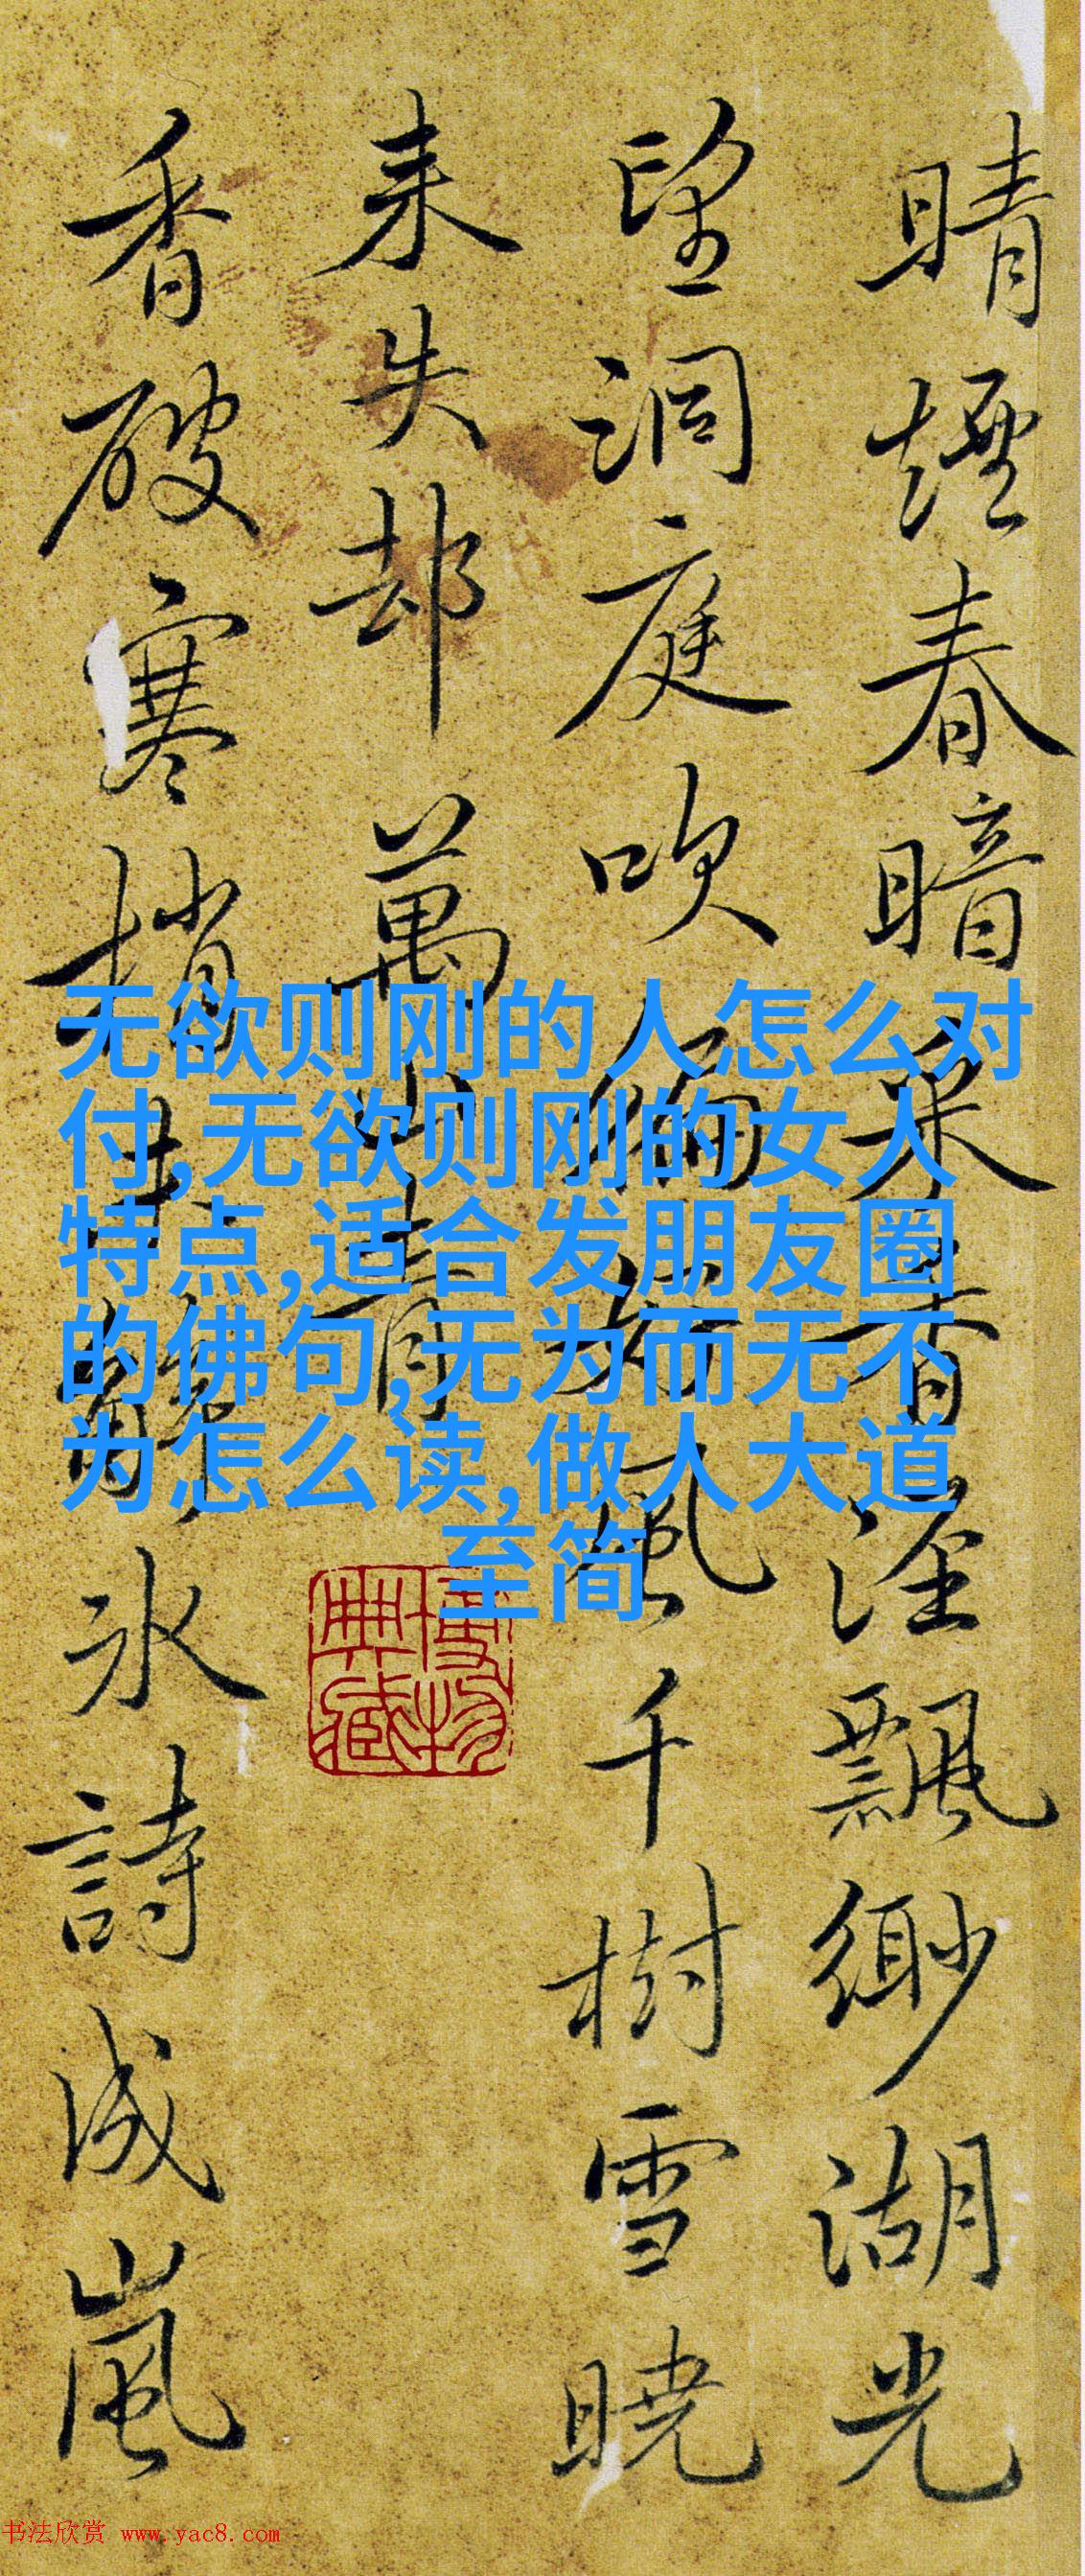 晴煙春暗采香涇飄緲湖光
望洞庭吹徧好風千樹雪曉
来失却萬山青
香破寒梢冰詩成嵐
无欲则刚的人怎么对
付,无欲则刚的女人
特点,适合发朋友圈
的佛句,无为而无不
为怎么读,做人大道
至简
博物
典藏
书法欣赏 www.yac8.com